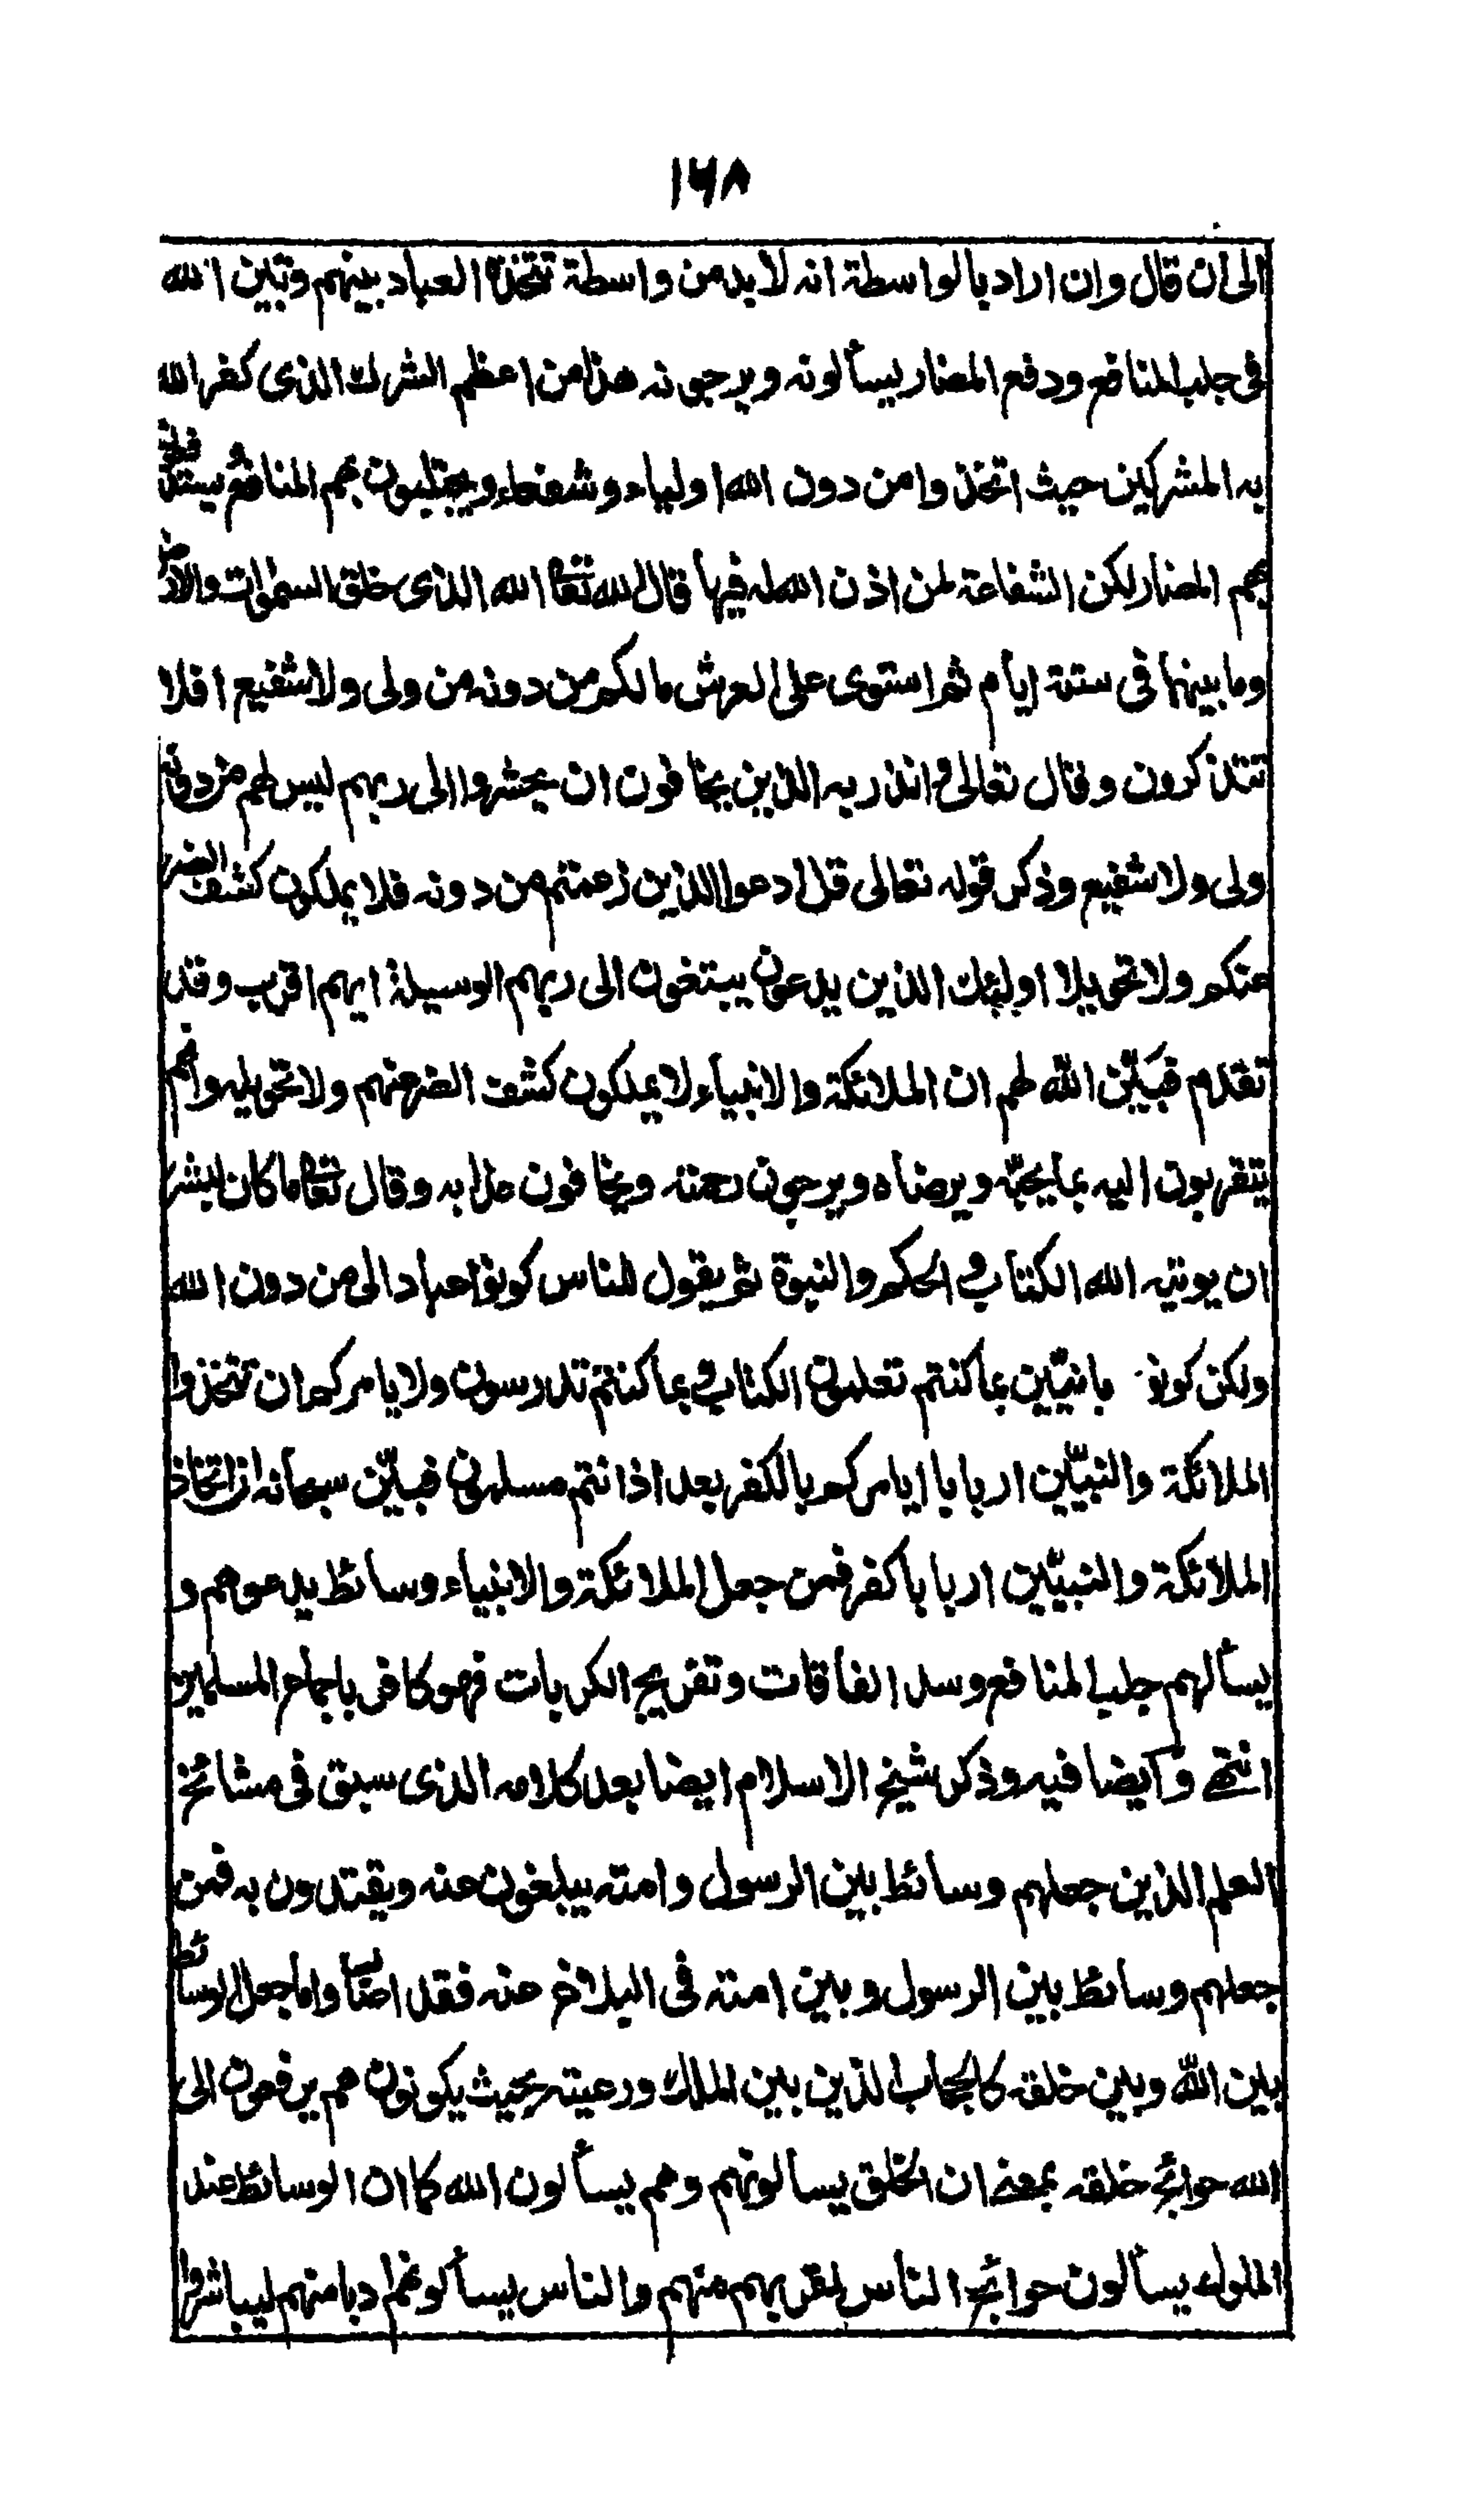 ١٦٨
الى ان قال وان اراد بالواسطة انه لا بد من واسطة تتخذها العباد بينهم وبين الله
فى جلب المنافع ودفع المضار يسألونه ويرجونه هذا من اعظم الشرك الذى كفر الله
به المشركين حيث اتخذوا من دون الله اولياء وشفعاء ويجتلبون بهم المنافع ويستدفعون
بهم المضار لكن الشفاعة لمن اذن الله له فيها قال الله تعالى الله الذى خلق السموات والارض
وما بينهما فى ستة ايام ثم استوى على العرش مالكم من دونه من ولى ولا شفيع افلا
تتذكرون وقال تعالى وانذر به الذين يخافون ان يحشروا الى ربهم ليس لهم من دونه
ولى ولا شفيع وذكر قوله تعالى قل ادعوا الذين زعمتم من دونه فلا يملكون كشف الضر
عنكم ولا تحويلا اولئك الذين يدعون يبتغون الى ربهم الوسيلة ايهم اقرب وقد
تقدم فبيّن الله لهم ان الملائكة والانبياء لا يملكون كشف الضر عنهم ولا تحويله وانهم
يتقربون اليه بما يحبّه ويرضاه ويرجون رحمته ويخافون عذابه وقال تعالى ما كان لبشر
ان يوتيه الله الكتاب والحكم والنبوة ثم يقول للناس كونوا عبادا لى من دون الله
ولكن كونوا ربانيّين بما كنتم تعلمون الكتاب وبما كنتم تدرسون ولا يامركم ان تتخذوا
الملائكة والنبيّين اربابا ايامركم بالكفر بعد اذ انتم مسلمون فبيّن سبحانه ان اتخاذ
الملائكة والنبيّين اربابا كفر فمن جعل الملائكة والانبياء وسائط يدعوهم و
يسألهم جلب المنافع وسد الفاقات وتفريج الكربات فهو كافر باجماع المسلمين
انتهى وايضا فيه وذكر شيخ الاسلام ايضا بعد كلامه الذى سبق فى مشائخ
العلم الذين جعلهم وسائط بين الرسول وامته يبلغون عنه ويقتدون به فمن
جعلهم وسائط بين الرسول وبين امته فى البلاغ عنه فقد اصاب واما جعل الوسائط
بين الله وبين خلقه كالحجاب الذين بين الملك ورعيته بحيث يكونون هم يرفعون الى
الله حوائج خلقه بمعنى ان الخلق يسالونهم وهم يسألون الله كما ان الوسائط عند
الملوك يسألون حوائج الناس لقربهم منهم والناس يسألونهم ادبا منهم ليباشروا